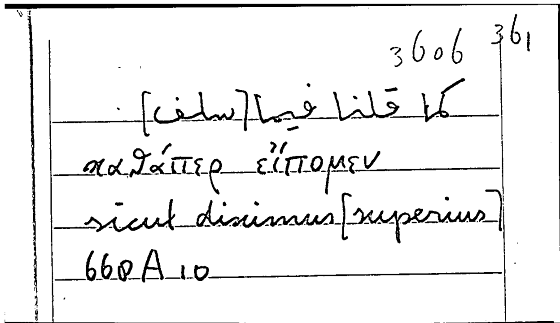 3606 361
كما قلنا فيما [سلف]
καθάπερ εἴπομεν
sicut diximus [superius]
660 A 10